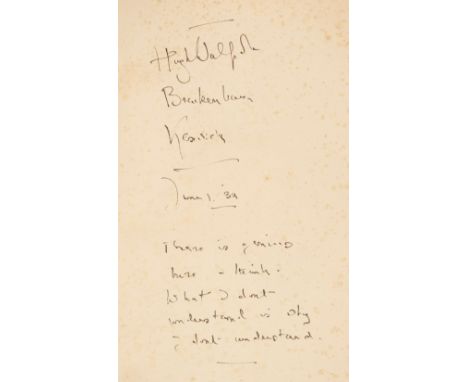 Hugh Walpole
Brackenburn
Keswick
June 1. '34
There is genius
here - I think.
What I don't
understand is why
I don't understand.